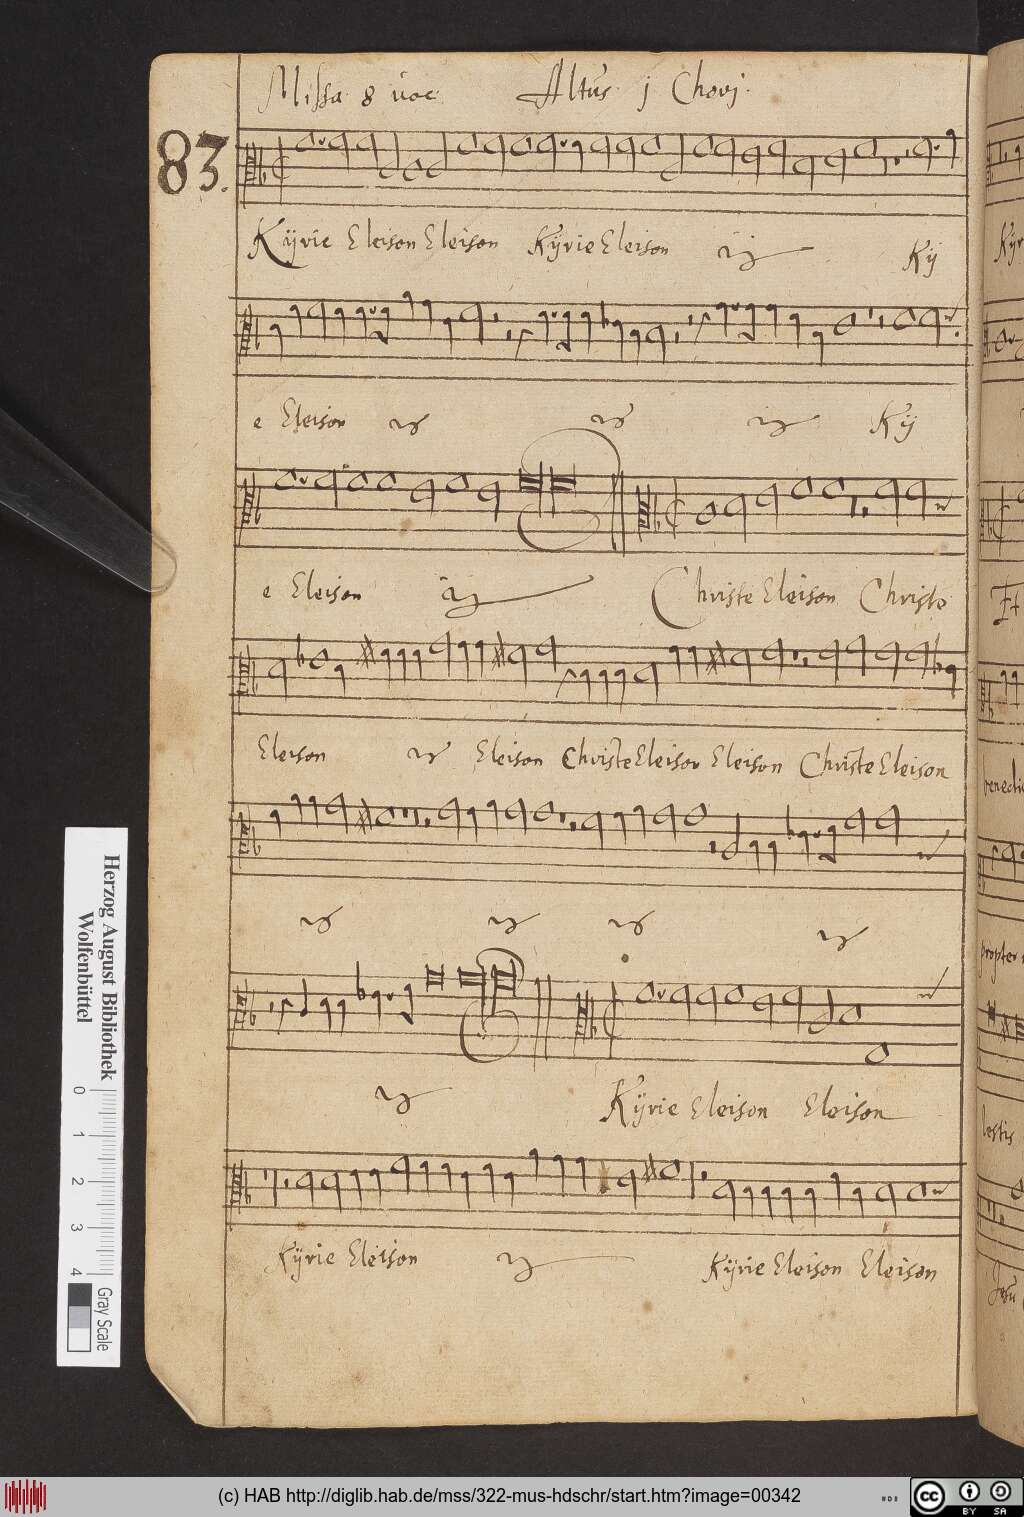 Missa 8 voc. Altus j Chori.
83.
Kÿrie Eleison Eleison Kÿrie Eleison ij Kÿ
e Eleison ij ij ij Kÿ
e Eleison ij Christe Eleison Christe
Eleison ij Eleison Christe Eleison Eleison Christe Eleison
ij ij ij ij
ij Kÿrie Eleison Eleison
Kÿrie Eleison ij Kÿrie Eleison Eleison
Kÿr
Et
propter
lestis
Jesu
Herzog August Bibliothek
Wolfenbüttel
0 1 2 3 4
Gray Scale
(c) HAB http://diglib.hab.de/mss/322-mus-hdschr/start.htm?image=00342
cc BY SA